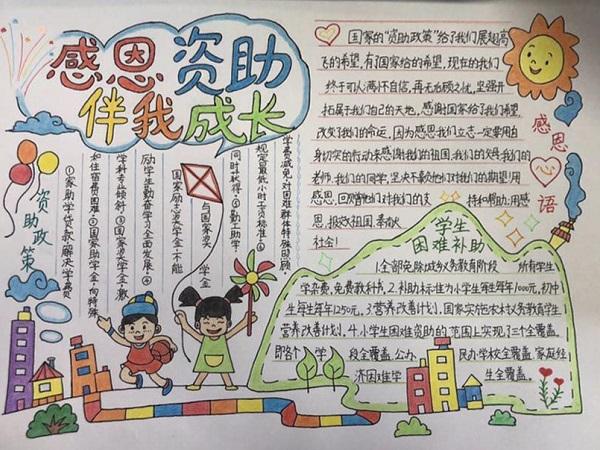 感恩资助
伴我成长
资助政策
①家助学贷款解决学费
和住宿费困难②国家助学金向特殊
学科专业倾斜③国家奖学金激
励学生勤奋学习全面发展④
国家励志奖学金不能
与国家奖
学金
同时获得⑤勤工助学
规定最低小时工资标准⑥
学费减免对困难群体特殊照顾
国家的“资助政策”给了我们展翅高
飞的希望,有了国家给的希望,现在的我们
终于可以满怀自信,再无后顾之忧,坚强开
拓属于我们自己的天地,感谢国家给了我们希望,
改变我们的命运,因为感恩我们立志一定要用自
身切实的行动来感谢我们的祖国,我们的父母,我们的
老师,我们的同学,坚决不辜负他对我们的期望!用
感恩,回赠他们对我们的支持和帮助,用感
恩,报效祖国,奉献
社会!
感恩心语
学生
困难补助
1.全部免除城乡义务教育阶段所有学生
学杂费,免费教科书,2.补助标准为小学生每生每年1000元,初中
生每生每年1250元,3.营养改善计划,国家实施农村义务教育学生
营养改善计划,4.小学生困难资助的范围上实现了三个全覆盖,
即各个学段全覆盖,公办、民办学校全覆盖,家庭经
济困难学生全覆盖.